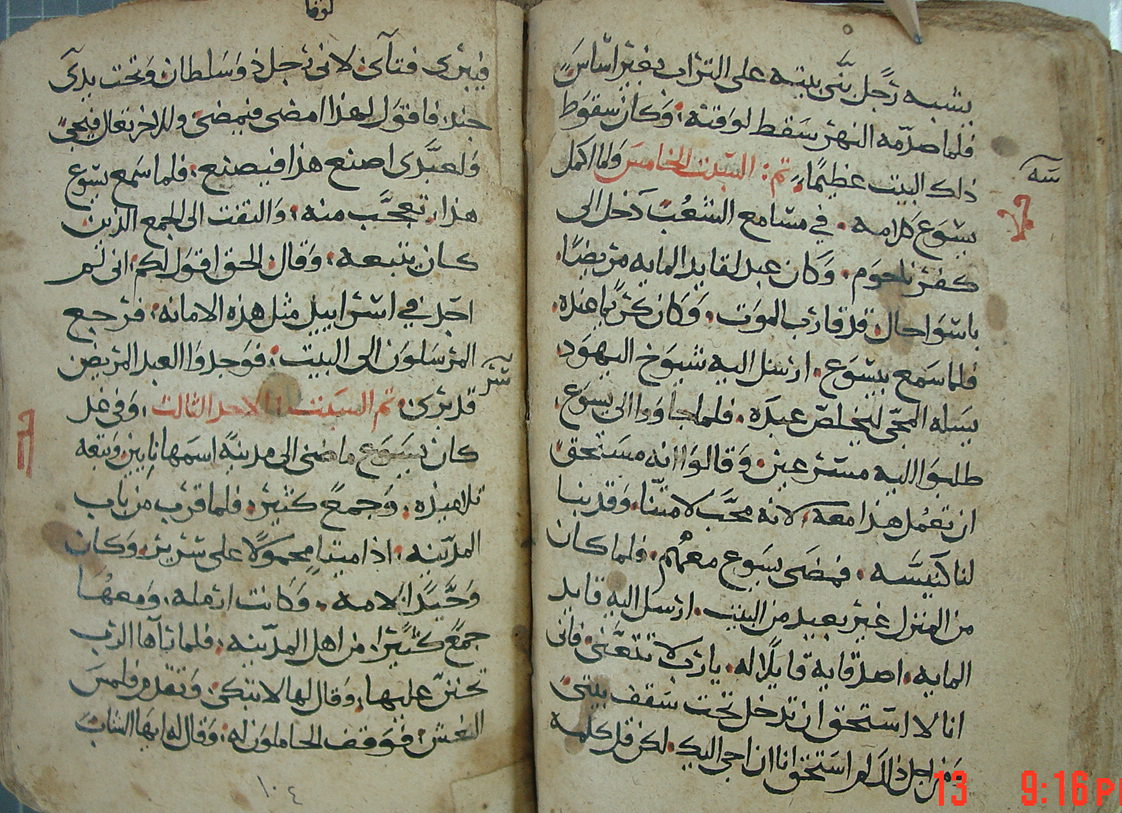 يشبه رجل بنى بيته على التراب بغير اساس
فلما صدمه النهر سقط لوقته، وكان سقوط
ذلك البيت عظيمًا، تم: السبت الخامس ولما اكمل
يسوع كلامه. في مسامع الشعب دخل الى
كفرناحوم. وكان عبد لقايد المايه مريضًا.
باسوا حال قد قارب الموت. وكان كريمًا عنده
فلما سمع بيسوع. ارسل اليه شيوخ اليهود
يسله المجي ليخلص عبده. فلما جاووا الى يسوع
طلبوا اليه مسترعين. وقالوا انه مستحق
ان تعمل هذا معه. لانه محب لامتنا. وقد بنا
لنا كنيسه. فمضى يسوع معهم. فلما كان
من المنزل غير بعيد من البيت. ارسل اليه قايد
المايه. اصدقايه قايلا له. يارب لا تتعنى فانى
انا لا استحق ان تدخل تحت سقف بيتى
ومن اجل ذلك لم استحق انا ان اجي اليك. لكن قل كلمه
لوقا
فيبرى فتاى. لانى رجل ذو سلطان وتحت يدى
جند. فاقول لهذا امضى فيمضى وللاخر تعال فيجي
ولعبدى اصنع هذا فيصنع. فلما سمع يسوع
هذا. تعجب منه. والتفت الى الجمع الذين
كان يتبعه. وقال الحق اقول لكم انى لم
اجد في اسراييل مثل هذه الامانه. فرجع
المرسلون الى البيت. فوجدوا العبد المريض
قد برى. تم السبت الاحد الثالث. وفي غد
كان يسوع ماضى الى مدينة اسمها نايين وتبعه
تلاميذه. وجمع كثير. فلما قرب من باب
المدينه. اذا ميتا محمولًا على سرير. وكان
وحيدًا لامه. وكانت ارمله. ومعها
جمع كثيرا. من اهل المدينه. فلما رآها الرب
تحنن عليها. وقال لها لا تبكى. وتقدم ولمس
النعش. فوقف الحاملون له. وقال له ايها الشاب
١٠٤
13 9:16